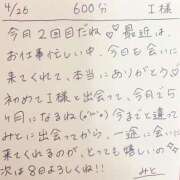 4/26 600分 I様
今月2回目だね♡♡最近は、
お仕事忙しい中、今日も会いに
来てくれて、本当にありがとう♡
初めてI様と出会って、今月で5
ヶ月になるね(o'∀'o)今まで違って
みとに出会ってから、一途に会いに
来てくれるのが、とっても嬉しいの♡
次は8日よろしくね!! みと